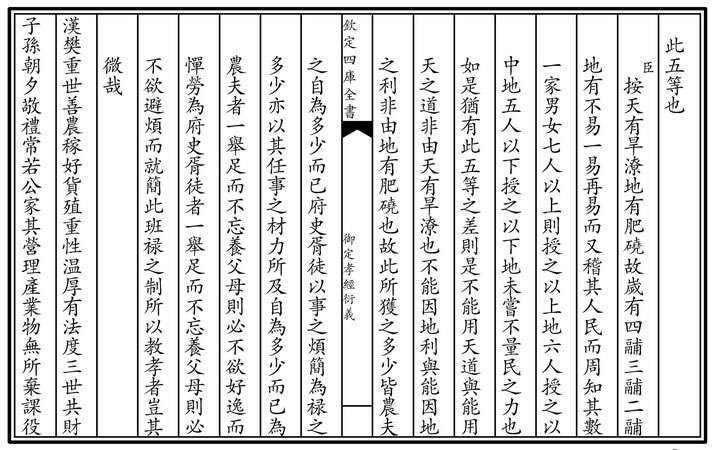 此五等也
臣按天有旱潦地有肥磽故歲有四鬴三鬴二鬴
地有不易一易再易而又稽其人民而周知其數
一家男女七人以上則授之以上地六人授之以
中地五人以下授之以下地未嘗不量民之力也
如是猶有此五等之差則是不能用天道與能用
天之道非由天有旱潦也不能因地利與能因地
之利非由地有肥磽也故此所獲之多少皆農夫
欽定四庫全書
御定孝經衍義
之自為多少而已府史胥徒以事之煩簡為禄之
多少亦以其任事之材力所及自為多少而已為
農夫者一舉足而不忘養父母則必不欲好逸而
憚勞為府史胥徒者一舉足而不忘養父母則必
不欲避煩而就簡此班禄之制所以教孝者豈其
微哉
漢樊重世善農稼好貨殖重性温厚有法度三世共財
子孫朝夕敬禮常若公家其營理產業物無所棄課役